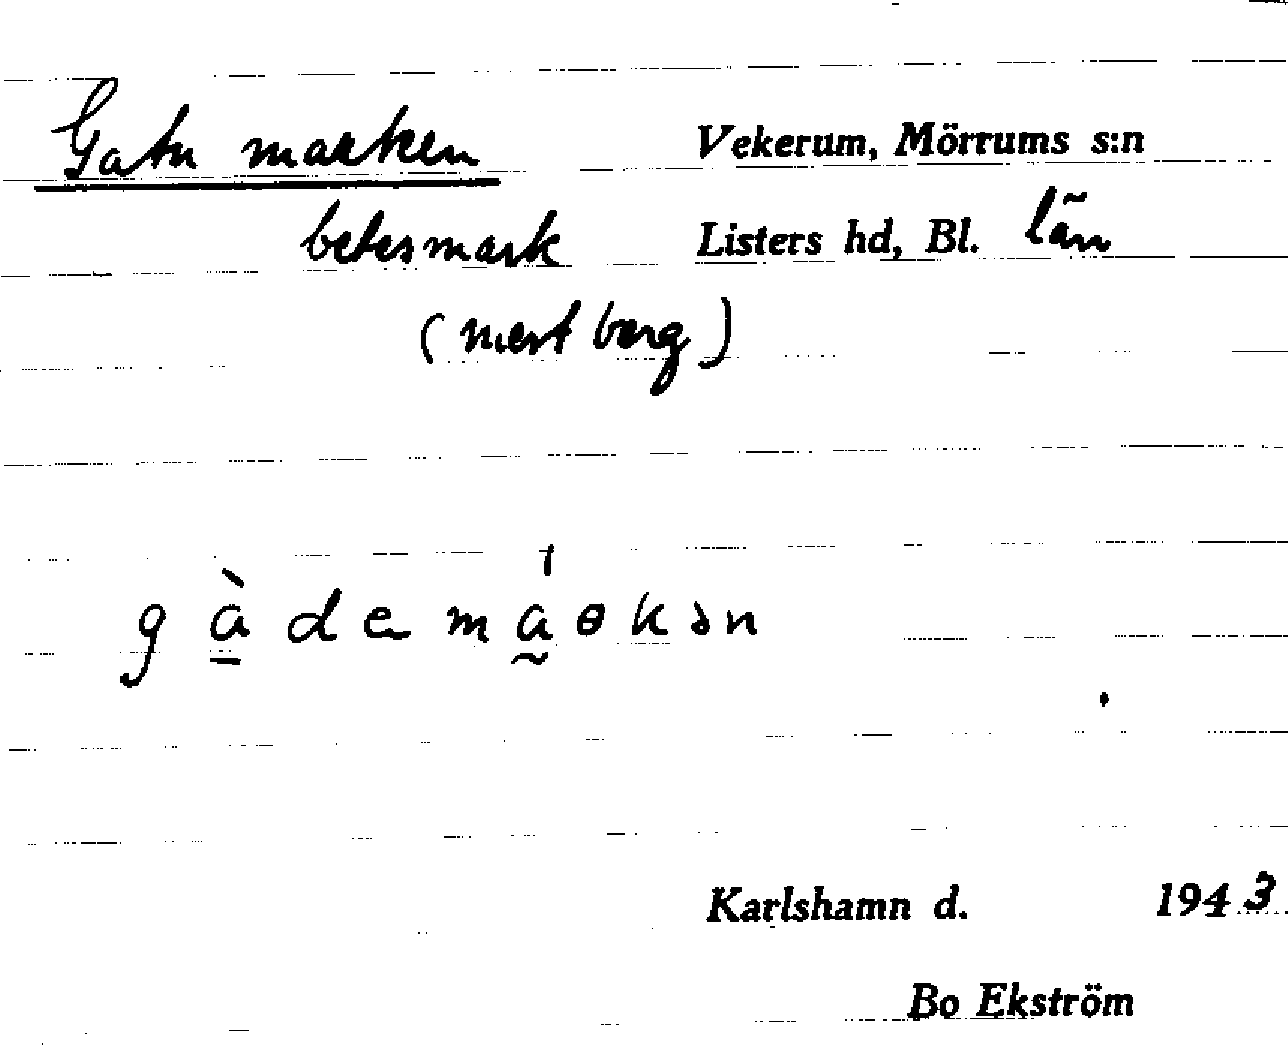 Gatu marken Vekerum, Mörrums s:n
betesmark Listers hd, Bl. län
(mest berg)
Karlshamn d. 1943
Bo Ekström